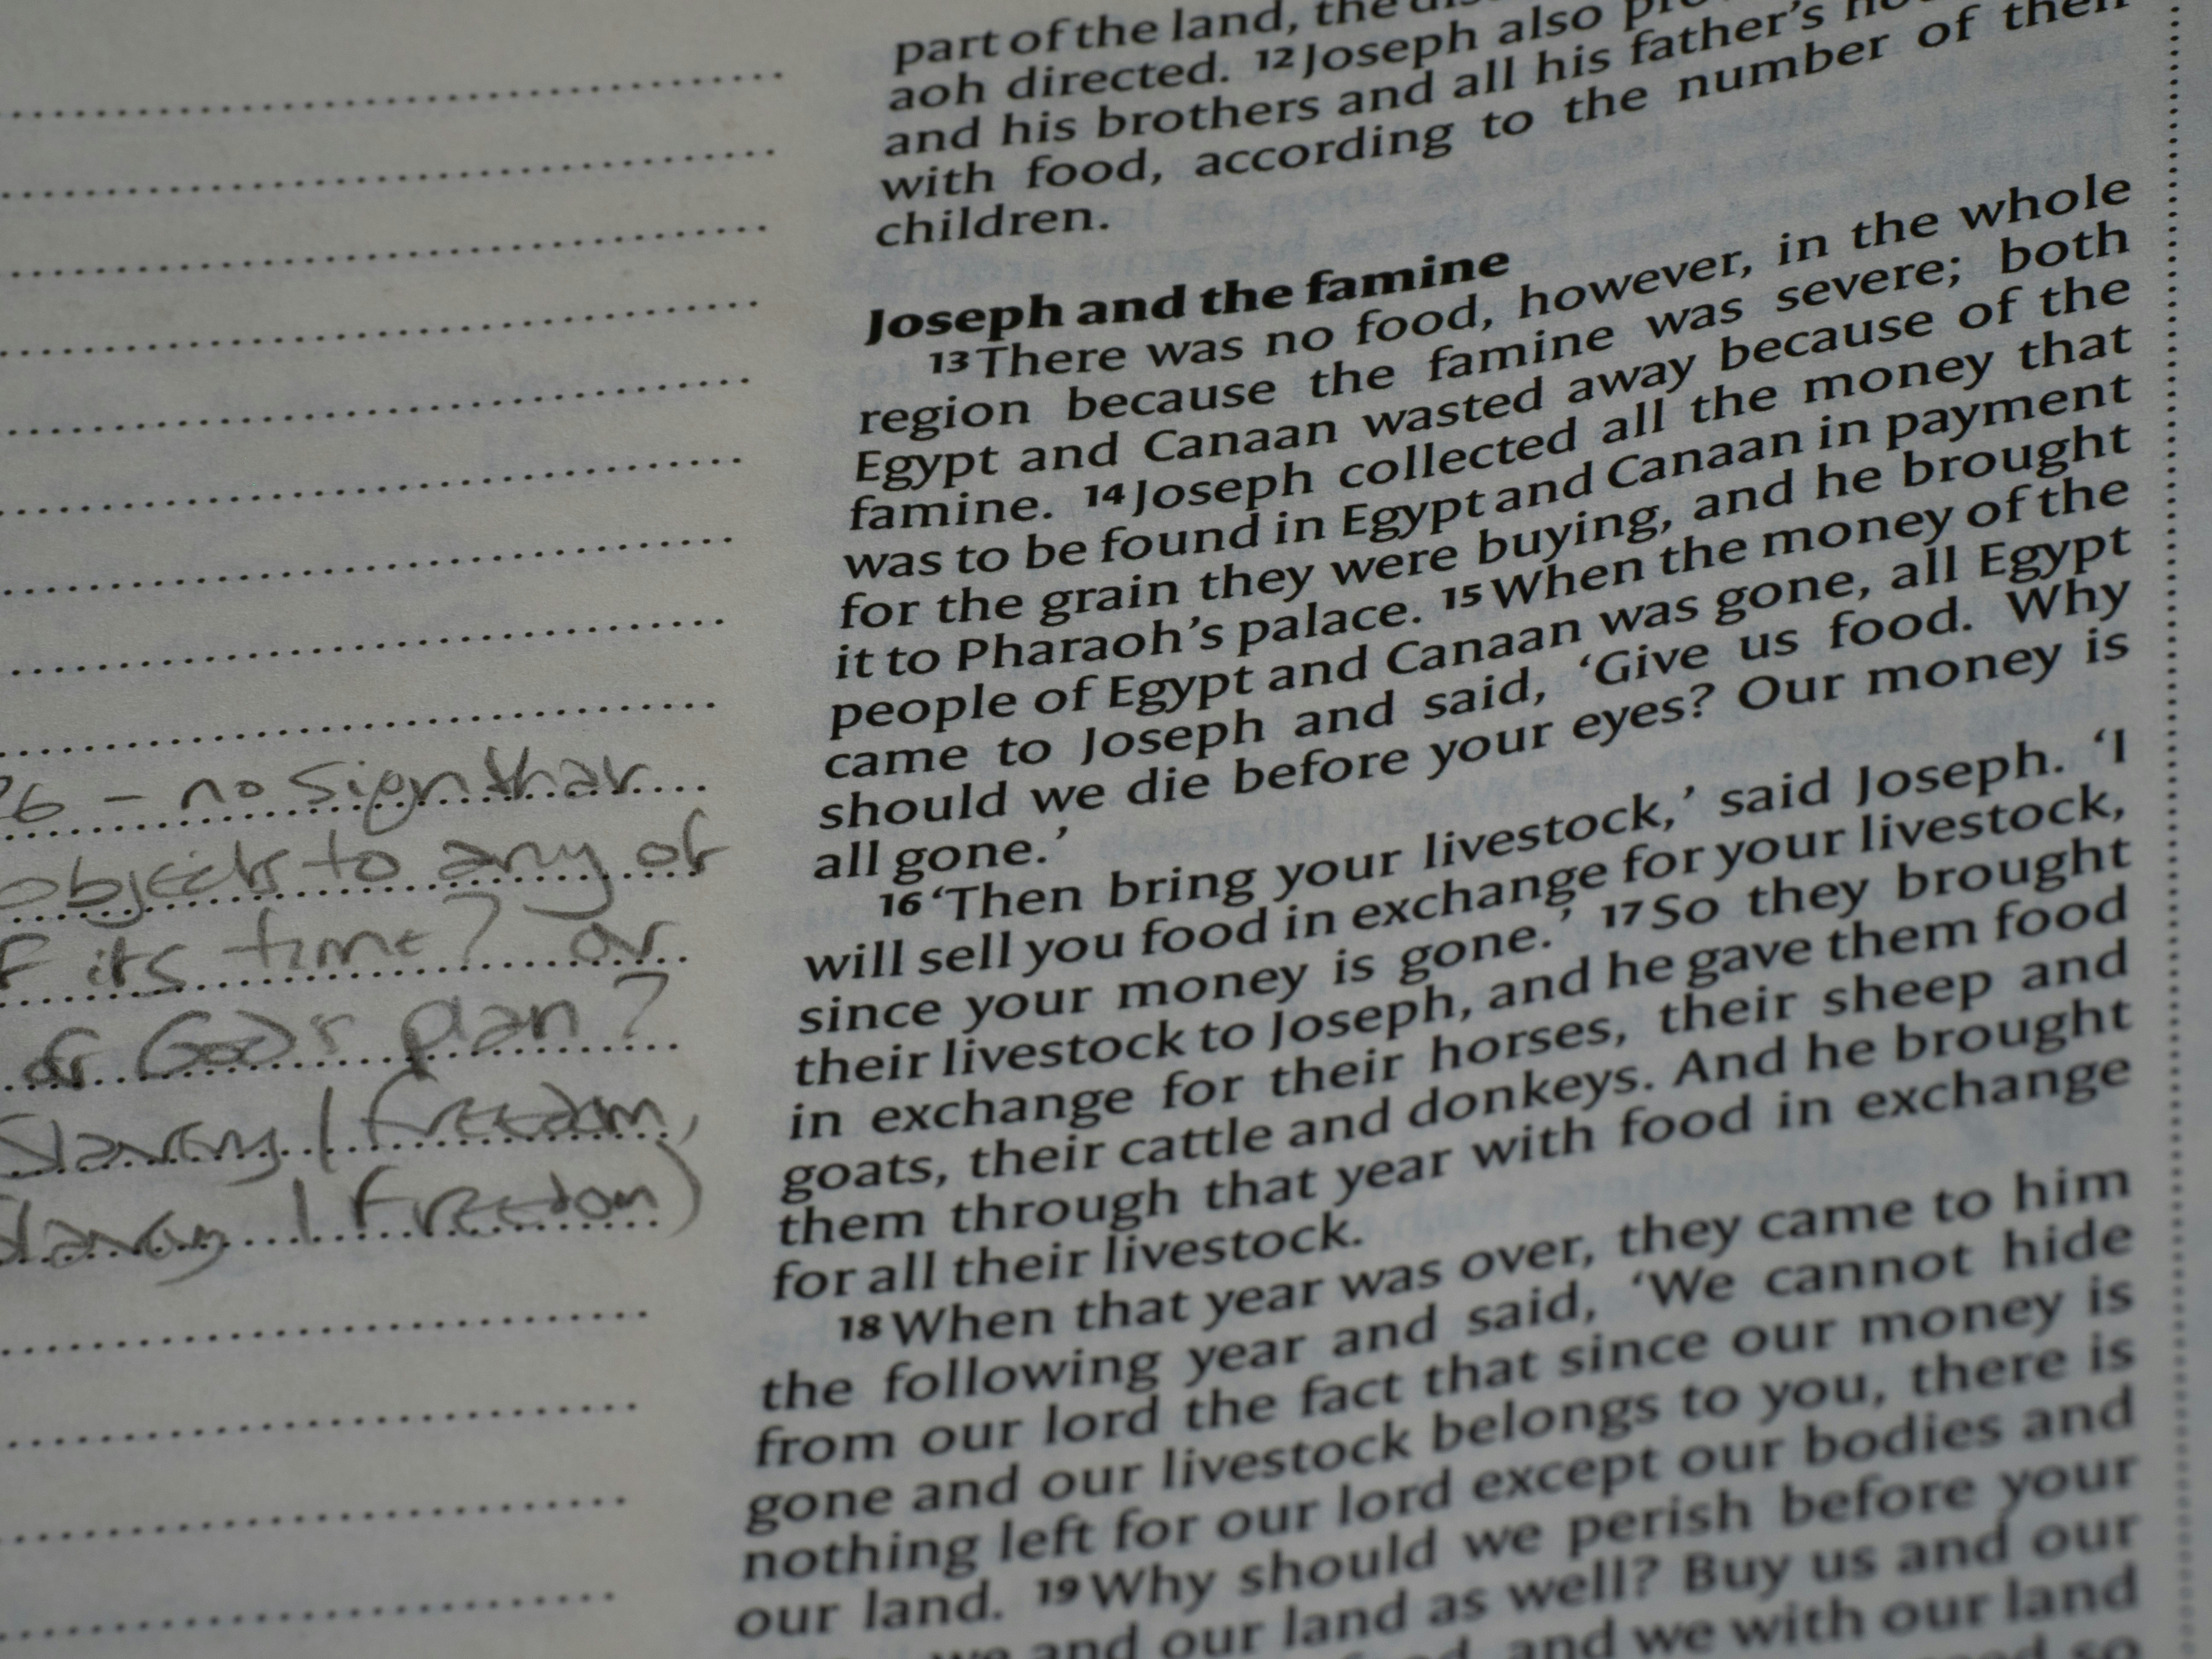 part of the land, the
aoh directed. 12Joseph also
and his brothers and all his father's
with food, according to the number of their
children.
Joseph and the famine
13There was no food, however, in the whole
region because the famine was severe; both
Egypt and Canaan wasted away because of the
famine. 14Joseph collected all the money that
was to be found in Egypt and Canaan in payment
for the grain they were buying, and he brought
it to Pharaoh's palace. 15When the money of the
people of Egypt and Canaan was gone, all Egypt
came to Joseph and said, ‘Give us food. Why
should we die before your eyes? Our money is
all gone.’
16‘Then bring your livestock,’ said Joseph. ‘I
will sell you food in exchange for your livestock,
since your money is gone.’ 17So they brought
their livestock to Joseph, and he gave them food
in exchange for their horses, their sheep and
goats, their cattle and donkeys. And he brought
them through that year with food in exchange
for all their livestock.
18When that year was over, they came to him
the following year and said, ‘We cannot hide
from our lord the fact that since our money is
gone and our livestock belongs to you, there is
nothing left for our lord except our bodies and
our land. 19Why should we perish before your
we and our land as well? Buy us and our
and we with our land
so
26 – no sign that
objects to any of
its time? or
of God's plan?
Slavery / freedom,
slavery / freedom)